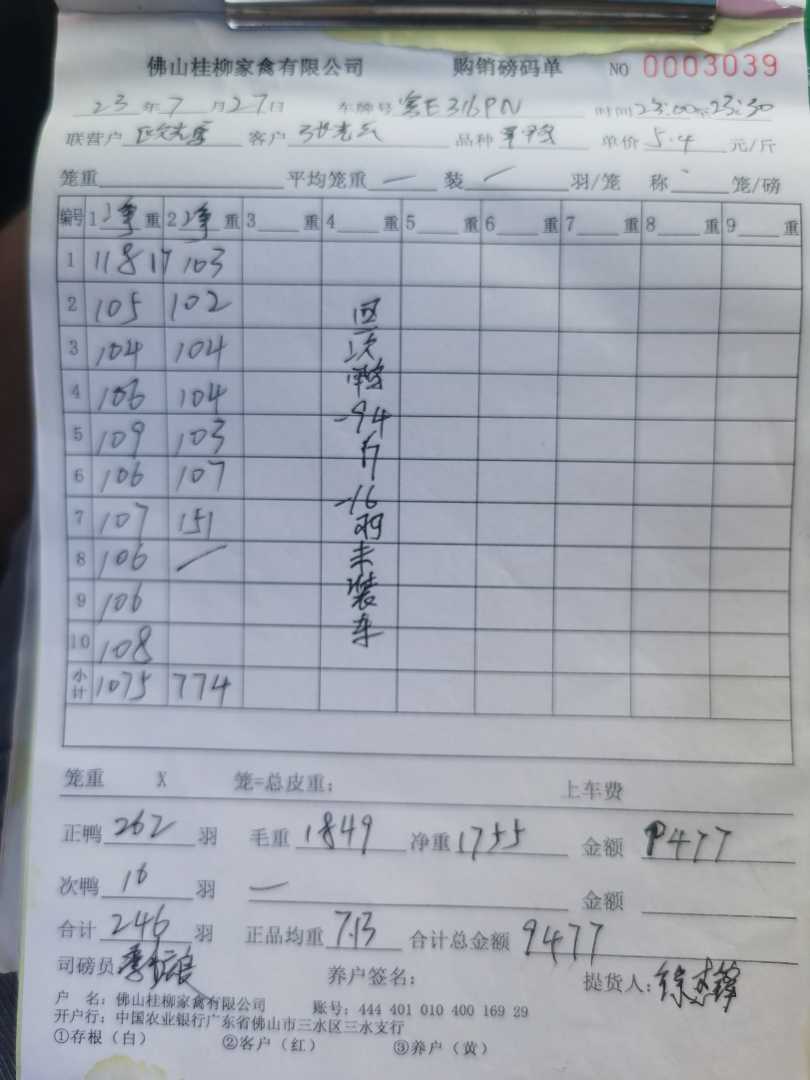 佛山桂柳家禽有限公司 购销磅码单 NO 0003039
23 年 7 月 27 日 车牌号 粤E316PN 时间 23:00 23:30
联营户 客户 品种 单价 5.4 元/斤
笼重 平均笼重 — 装 / 羽/笼 称 笼/磅
编号 1 净 重 2 净 重 3 重 4 重 5 重 6 重 7 重 8 重 9 重
1 118 17 103
2 105 102
3 104 104
4 106 104
5 109 103
6 106 107
7 107 151
8 106 —
9 106
10 108
小计 1075 774
回
次
鸭
-94
斤
-16
羽
未
装
车
笼重 X 笼=总皮重: 上车费
正鸭 262 羽 毛重 1849 净重 1755 金额 9477
次鸭 16 羽 — 金额
合计 246 羽 正品均重 7.13 合计总金额 9477
司磅员 养户签名: 提货人:
户 名: 佛山桂柳家禽有限公司 账号: 444 401 010 400 169 29
开户行: 中国农业银行广东省佛山市三水区三水支行
①存根（白） ②客户（红） ③养户（黄）